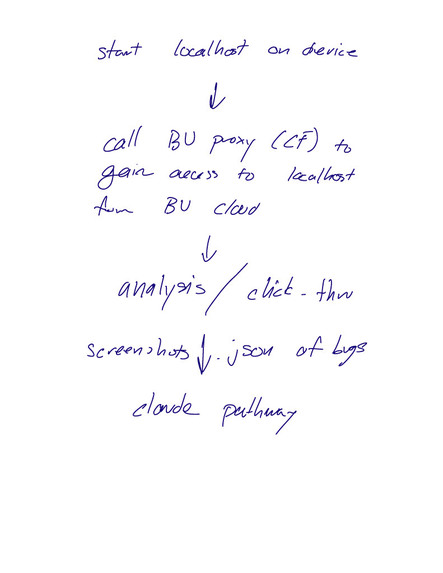 start localhost on device
↓
call BU proxy (CF) to
gain access to localhost
from BU cloud
↓
analysis / click-thru
screenshots ↓ .json of bugs
claude pathway